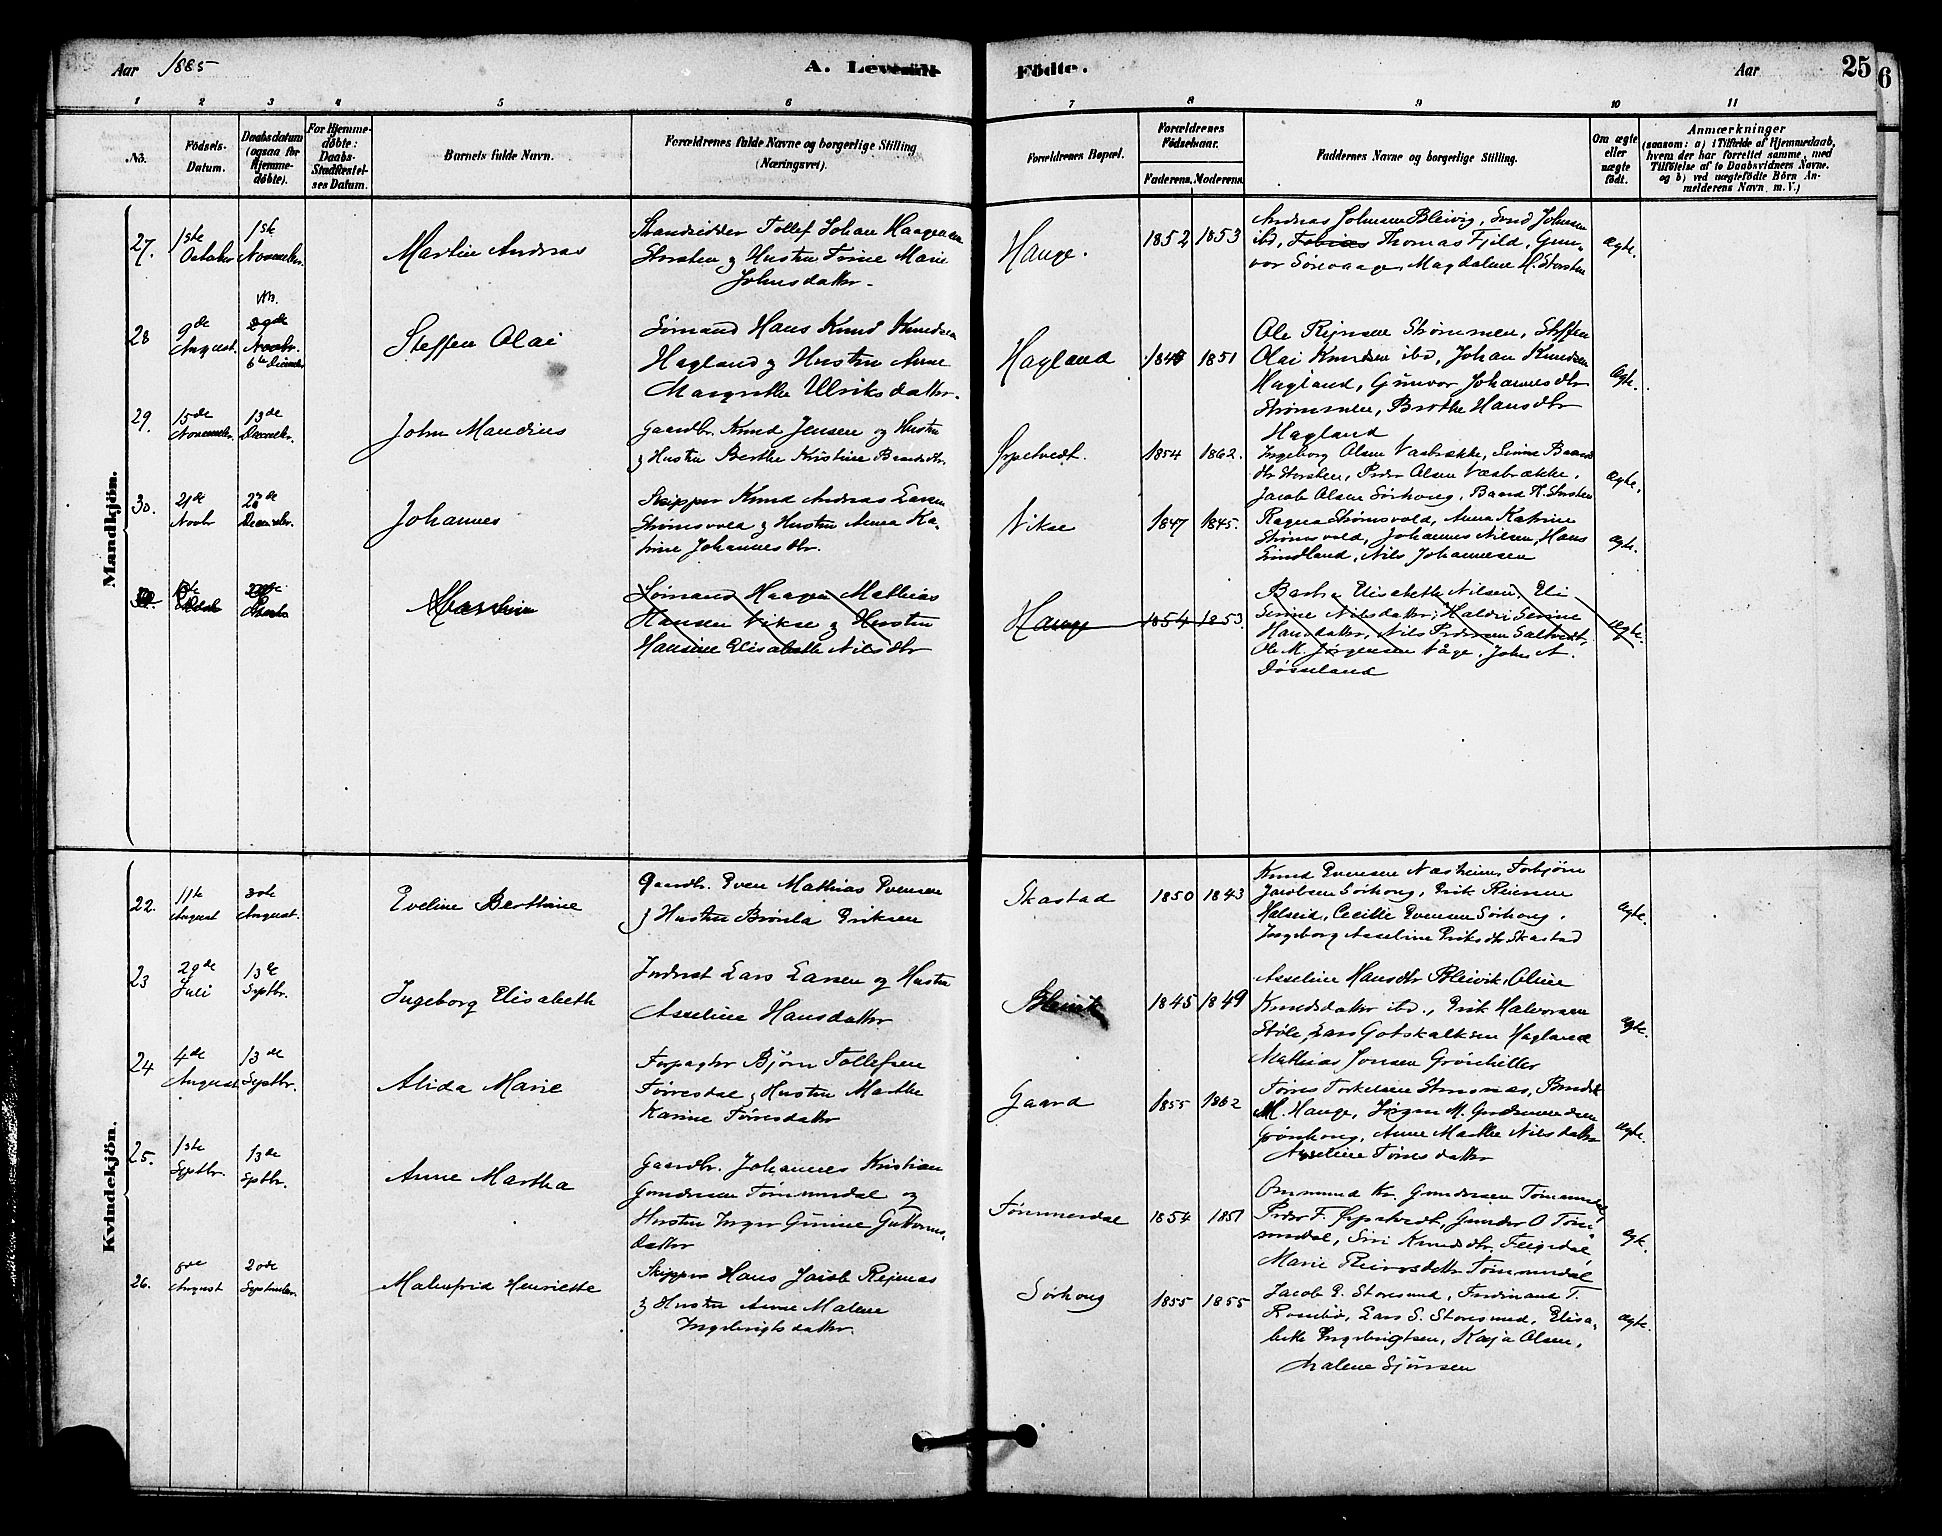 Aar 1885
A. Levende
Födte.
Aar
25
6
1 2 3 4 5 6 7 8 9 10 11
No.
Födsels-Datum.
Daabsdatum (ogsaa for Hjemme-døbte).
For Hjemme-døbte: Daabs-Stadfæstel-ses Datum.
Barnets fulde Navn.
Forældrenes fulde Navne og borgerlige Stilling (Næringsvei).
Forældrenes Bopæl.
Forældrenes Födselsaar.
Faderens. Moderens.
Faddernes Navne og borgerlige Stilling.
Om ægte eller uægte født.
Anmærkninger
(saasom: a) i Tilfælde af Hjemmedaab,
hvem der har forrettet samme, med
Tilföielse af to Daabsvidners Navne,
og b) ved uægtefödte Börn An-
melderens Navn, m. V.)
Mandkjön.
27.
1ste October
1ste November.
Martin Andreas
Strandsidder Tollef Johan Haagensen
Storsten & Hustru Marie
Johnsdatter.
Hauge.
1852 1853
Andreas Johnsen Bleivig, Johnsen
ibd, Thomas Fjeld, Gun-
vor Sörevaage, Magdalene H. Storsten
Ægte.
28
9de August.
29de Novbr. 6te December
Steffen Olai
Sømand Hans Knud Knudsen
Hagland & Hustru Anne
Margrethe Ulriksdatter.
Hagland
1851
Ole Strømmen, Steffen
Olai Knudsen ibd, Johan Knudsen
Hagland, Gunvor Johannesdtr
Strømmen, Berthe Hansdtr
Hagland
Ægte.
29.
15de November.
13de December.
John Maudius
Gaardbr. Knud Jensen og Hustru
& Hustru Berthe Kristine
1854 1862.
Ingeborg Olsen
Storsten, Peder Olsen
Jacob Olsen Sørhoug, Baard H. Storsten
Ægte.
30.
21de Novbr
December.
Johannes
Skipper Knud Andreas Larsen
Strømsvold & Hustru Anna Ka-
trine Johannesdtr.
Vikse
1847 1845.
Ragna Strømsvold, Anna Katrine
Strømsvold, Johannes Nilsen, Hans
Nils Johannesen
Ægte.
Sømand Haagen Mathias
Hansen Vikse & Hustru
Hansine Elisabeth Nilsdtr
Hauge
1854 1853.
Elisabeth Nilsen, Eli
Serine Nilsdatter, Serine
Hansdatter, Nils Pedersen
Ole M. Jørgensen Våge, John A.
Døsseland
Ægte.
Kvindekjön.
22.
11te August
30te August.
Eveline Berthine
Gaardbr. Even Mathias Evensen
& Hustru Brønla Eriksen
Skastad
1850 1843
Knud Evensen Næsheim, Torbjørn
Jacobsen Sørhoug, Erik
Halseid, Cecilie Evensen Sørhoug,
Ingeborg Asseline Eriksdtr Skastad
Ægte.
23
29de Juli
13de Septbr.
Ingeborg Elisabeth
Inderst Lars Larsen og Hustru
Asseline Hansdatter
Bleivik
1845 1849
Asseline Hansdtr Bleivik, Oline
Knudsdatter ibd., Erik Halvorsen
Støle, Lars Gotskalksen Hagland
Mathias Jonsen Grønhiller
Ægte.
24
4de August
13de Septbr.
Alida Marie
Forpagter Bjørn Tollefsen
Tørresdal & Hustru Marthe
Karine Tørresdatter
Gaard
1855 1862
Tørres Torkelsen
M. Hauge, Jørgen M.
Grönhoug, Anne Marthe Nilsdatter
Asseline Tørresdatter
Ægte.
25.
1ste Septbr.
13de Sptbr.
Anne Martha
Gaardbr. Johannes Kristian
Gundersen Tømmerdal og
Hustru Inger Gurine Guttorms-
datter
Tømmerdal
1854 1851
Ommund Kr. Gundersen
Peder F. Gunder O.
Siri Knudsdtr.
Marie
Ægte.
26.
August
20de September.
Malenfrid Henriette
Skipper Hans Jacob
& Hustru Anne Malene
Ingebrigtsdatter.
Sørhoug
1855 1855
Jacob E. Storesund, Ferdinand T.
Lars S. Storesund, Elisa-
beth Ingebrigtsen, Kaja Olsen,
Malene Sjursen
Ægte.